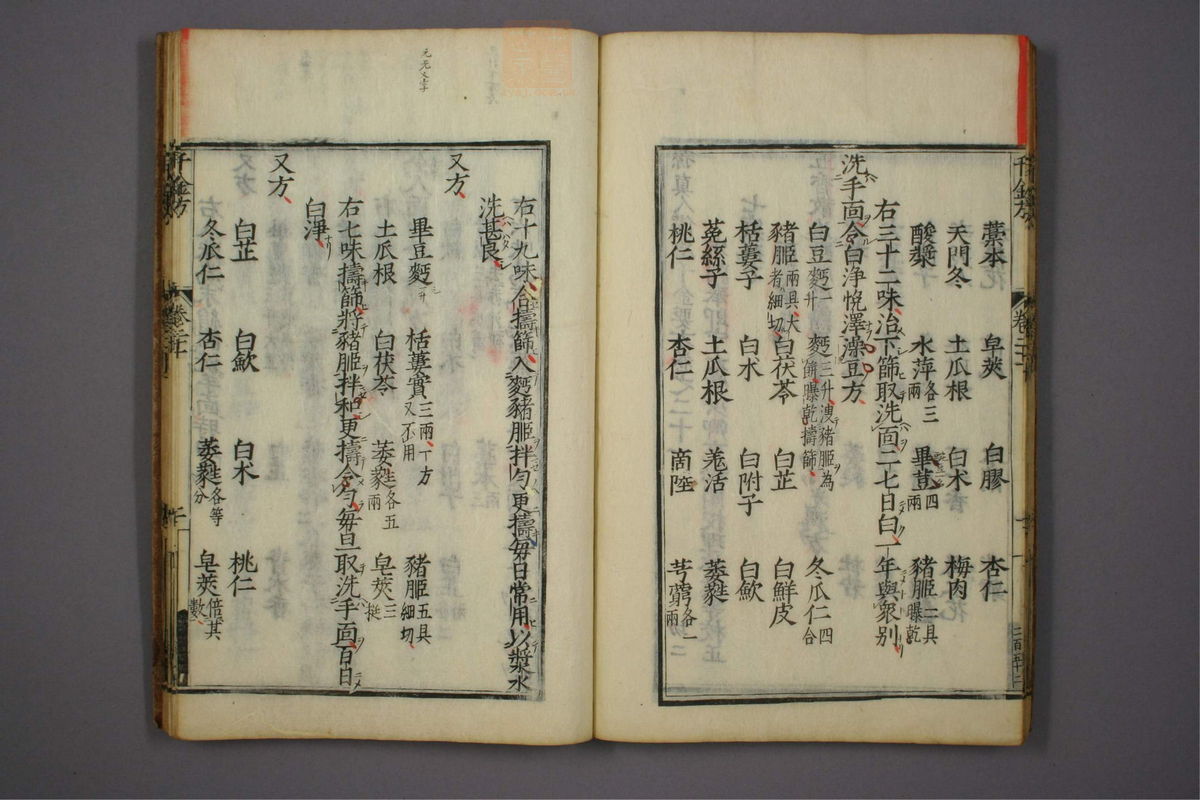 藁本 皁莢 白膠 杏仁
天門冬 土瓜根 白朮 梅肉
酸漿 水萍各三兩 畢豆四兩 豬䏶二具曝乾
右三十二味治下篩取洗面二七日白一年與衆別
洗手面令白淨悅澤澡豆方
白豆麪一升 麪三升溲豬䏶為餅曝乾擣篩 冬瓜仁四合
豬䏶兩具大者細切 白茯苓 白芷 白鮮皮
栝蔞子 白朮 白附子 白歛
菟絲子 土瓜根 羗活 萎蕤
桃仁 杏仁 商陸 芎藭各一兩
千金方
卷二十
右十九味合擣篩入麪豬䏶拌勻更擣每日常用以漿水
洗甚良
又方
畢豆麪一升 栝蔞實三兩一方又不用 豬䏶五具細切
土瓜根 白茯苓 萎蕤各五兩 皂莢三挺
右七味擣篩將豬䏶拌和更擣令勻每旦取洗手面百日
白淨
又方
白芷 白歛 白朮 桃仁
冬瓜仁 杏仁 萎蕤各等分 皂莢倍其數
千金方